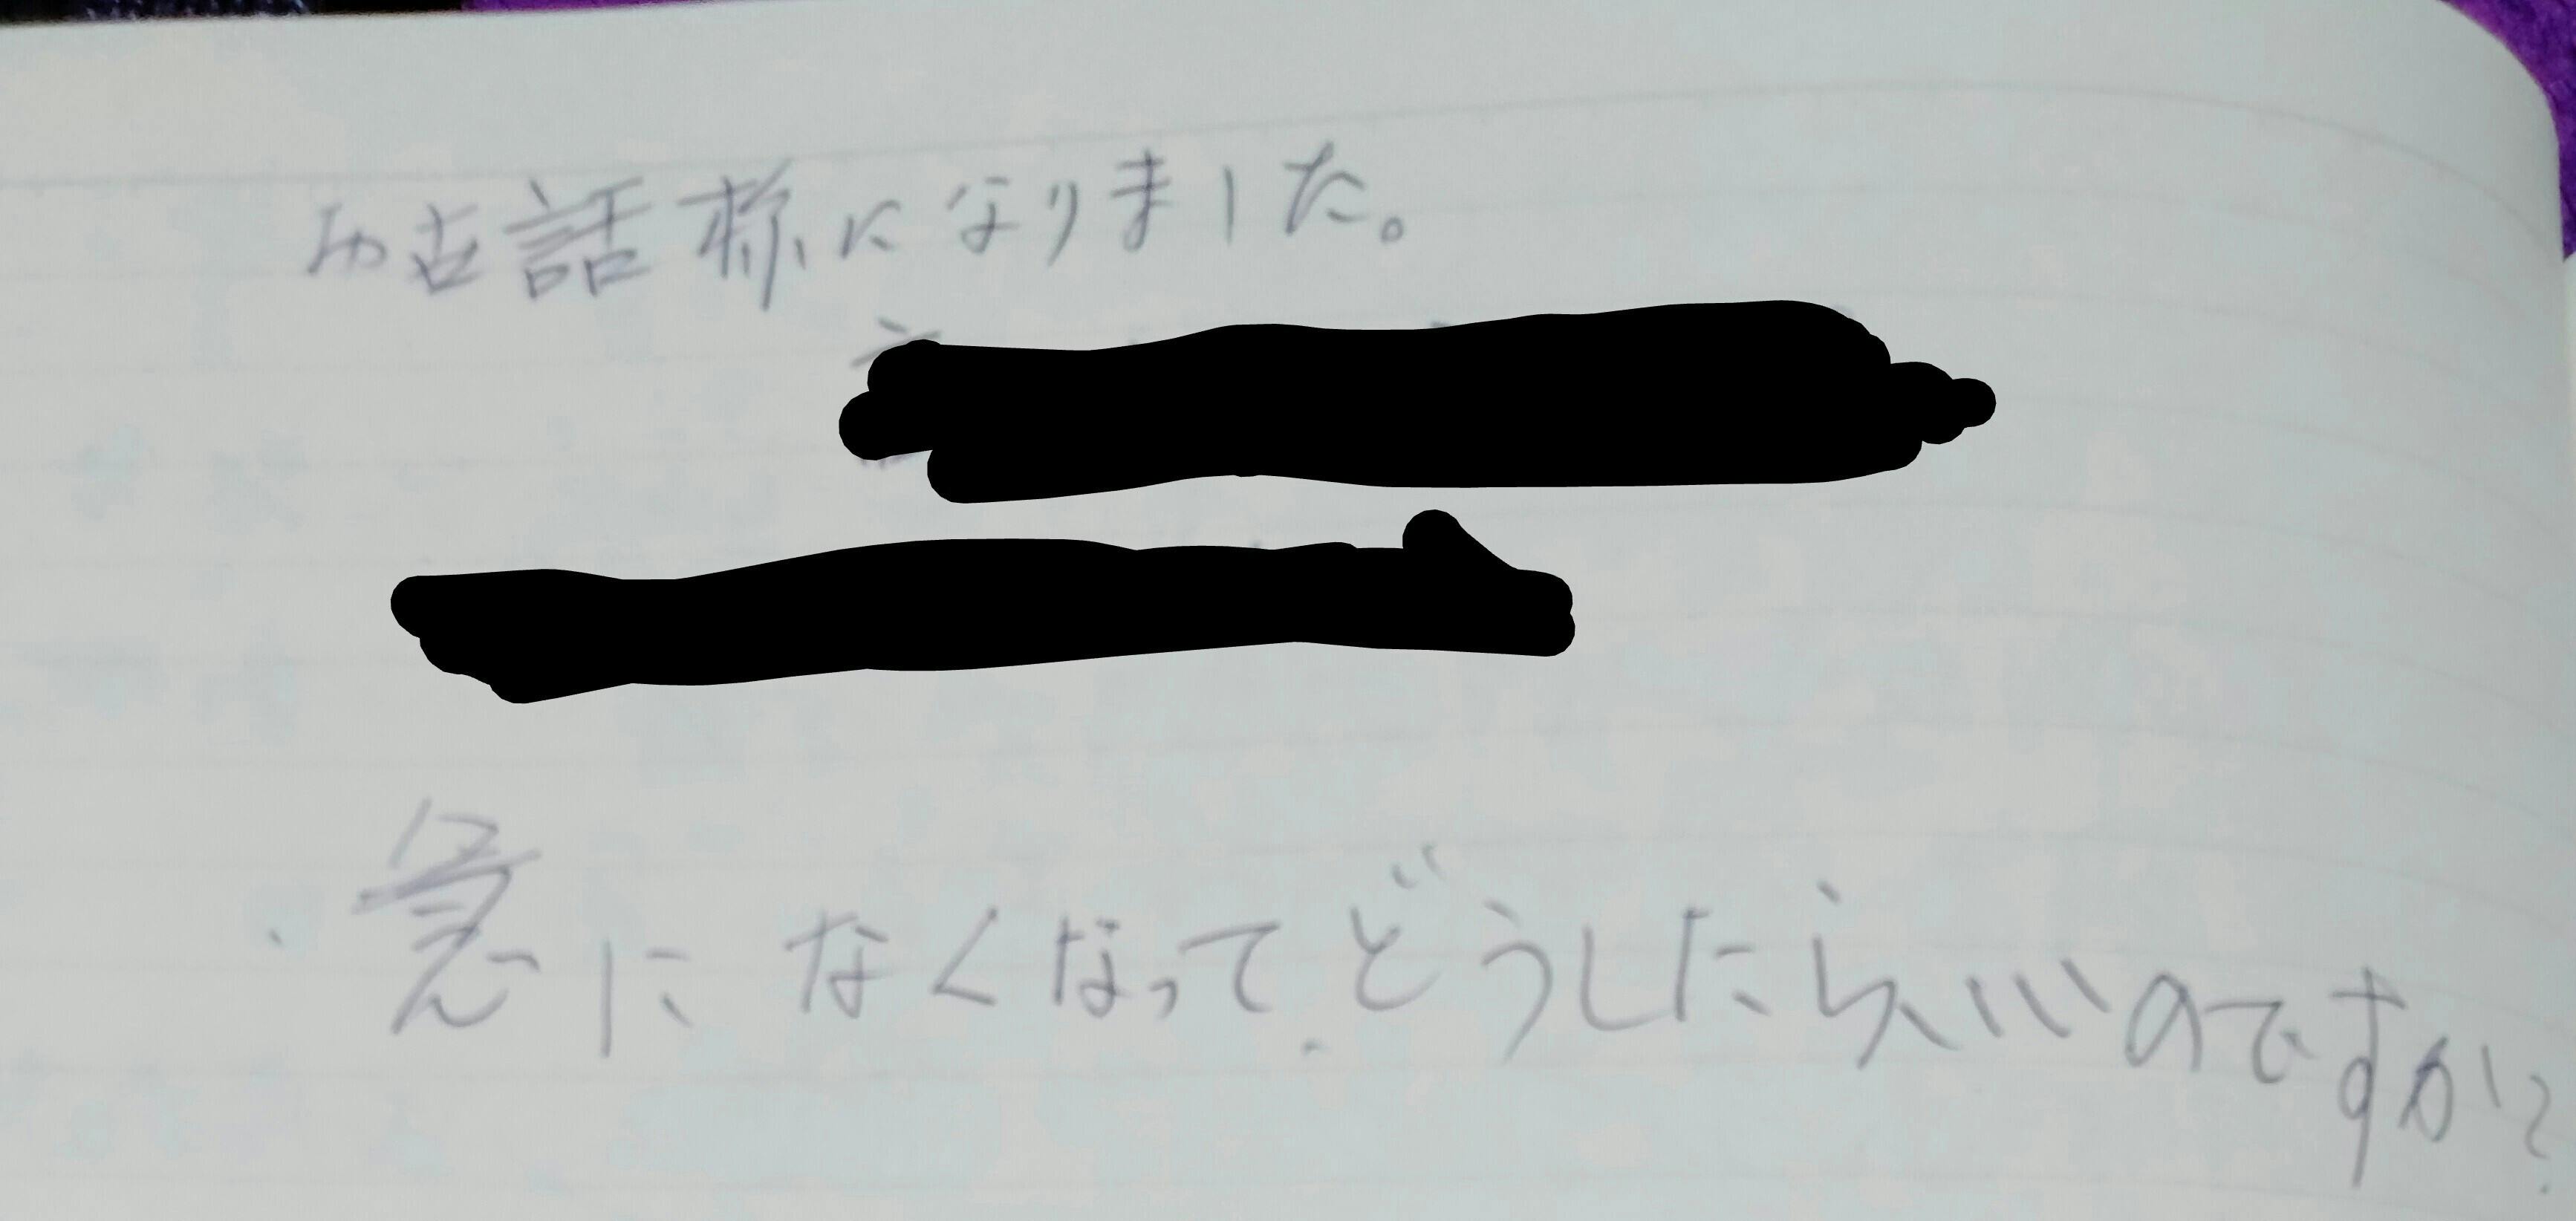 お世話様になりました。
急になくなってどうしたらいいのですか?